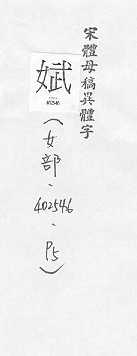 宋體母稿異體字
娬
402546
(女部、402546、P5)